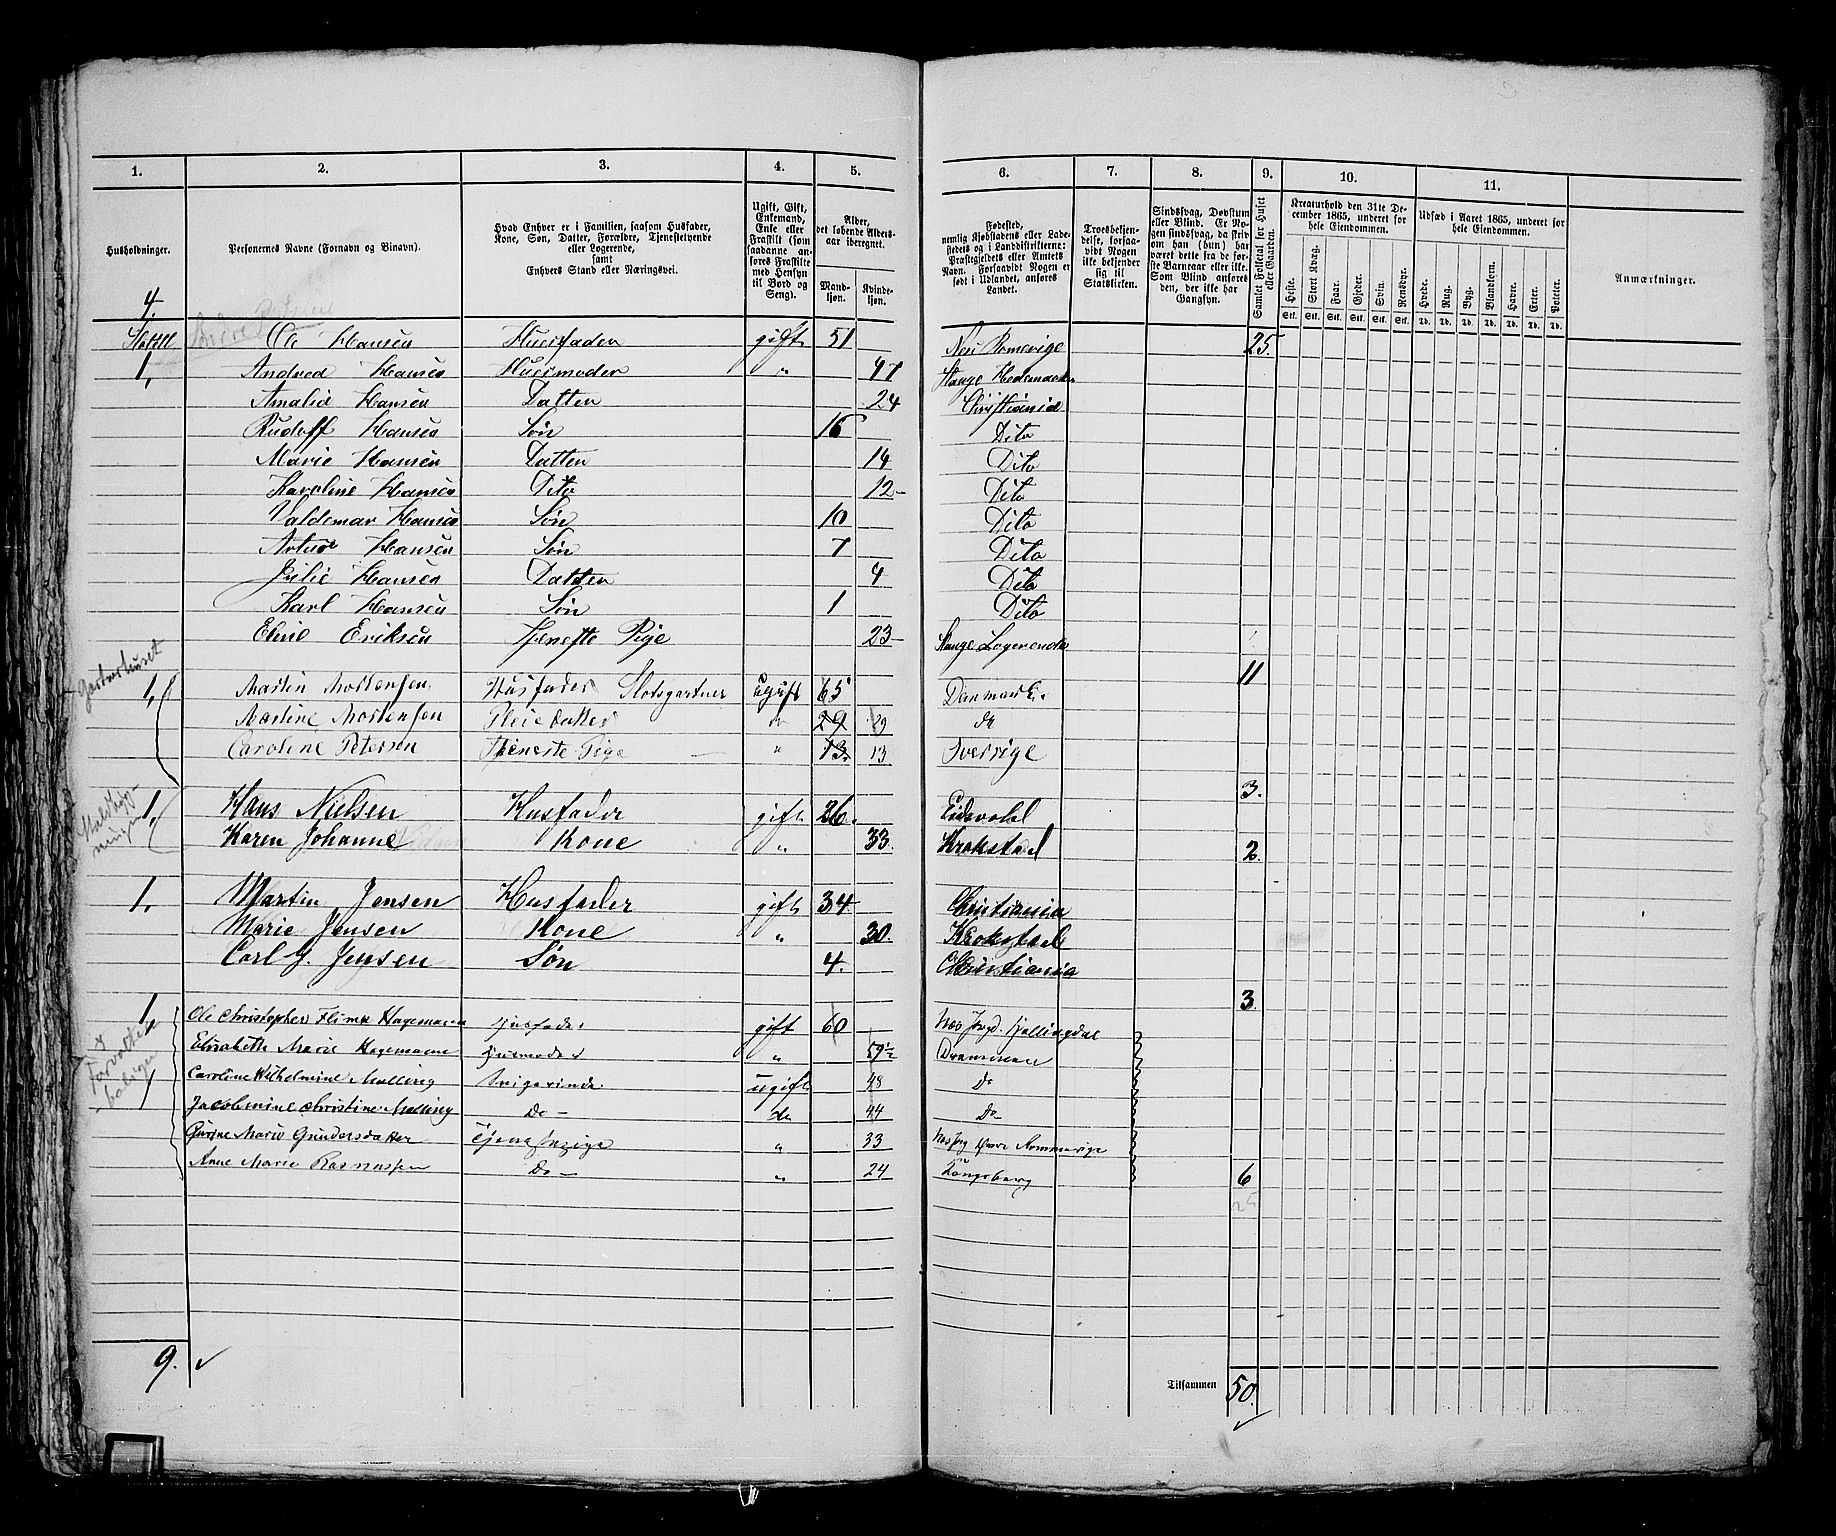 1. 2. 3. 4. 5. 6. 7. 8. 9. 10. 11.
Husholdninger.
Personernes Navne (Fornavn og Binavn).
Hvad Enhver er i Familien, saasom Husfader, Kone, Søn, Datter, Forældre, Tjenestetyende eller Logerende, samt Enhvers Stand eller Næringsvei.
Ugift, Gift, Enkemand, Enke eller Fraskilt (som saadanne anføres Fraskilte med Hensyn til Bord og Seng).
Alder, det løbende Aldersaar iberegnet.
Mandkjøn. Kvindekjøn.
Fødested, nemlig Kjøbstadens eller Ladestedets og i Landdistrikterne: Præstegjeldets eller Amtets Navn. Forsaavidt Nogen er født i Udlandet, anføres Landet.
Troesbekjendelse, forsaavidt Nogen ikke bekjender sig til Statskirken.
Sindssvag, Døvstum eller Blind. Er Nogen sindssvag, da skrives om han (hun) har været dette fra de første Barneaar eller ikke. Som Blind anføres den, der ikke har Gangsyn.
Samlet Folketal for Huset eller Gaarden.
Kreaturhold den 31te December 1865, underet for hele Eiendommen.
Heste. Stort Kvæg. Faar. Gjeder. Svin. Rensdyr.
Stk. Stk. Stk. Stk. Stk. Stk.
Udsæd i Aaret 1865, underet for hele Eiendommen.
Hvede. Rug. Byg. Blandkorn. Havre. Erter. Poteter.
Td. Td. Td. Td. Td. Td. Td.
Anmærkninger.
4.
Ole Hansen Huusfader gift 51 Nes Romerige 25.
1, Hansen Huusmoder " 47 Stange Hedemarken
Amalie Hansen Datter 24 Christiania
Rudolf Hansen Søn 16 Dito
Marie Hansen Datter 14 Dito
Karoline Hansen Dito 12- Dito
Valdemar Hansen Søn 10 Dito
Hansen Søn 7 Dito
Julie Hansen Datter 4 Dito
Karl Hansen Søn 1 Dito
Eriksen Tjeneste Pige 23- Stange Logerende
Gartnerhuset 11
1, Martin Mortensen Husfader Slotsgartner Ugift 65 Danmark.
Martine Mortensen Pleiedatter do 29 29 do
Caroline Petersen Tjeneste Pige " 13. 13 Sverrige
3.
1, Hans Nielsen Husfader gift 26. Eidsvold
Karen Johanne Kone " 33. Krokstad 2.
1, Martin Jensen Husfader gift 34 Christiania
Marie Jensen Kone " 30. Krokstad
Carl J. Jensen Søn 4. Christiania
1 3.
Ole Christopher Hagemann Husfader gift 60 Næs Hallingdal
Elisabeth Marie Hagemann Husmoder " 59½ Drammen
1 Caroline Wilhelmine Malling Svigerinde ugift 48 Do
Jacobmine Christine Malling Do - do 44 Do
Marie Gundersdatter Tjenestepige " 33 Rommerige
Anne Marie Rasmussen Do - " 24 Kongsberg 6
25
9. ✓
Tilsammen 50.